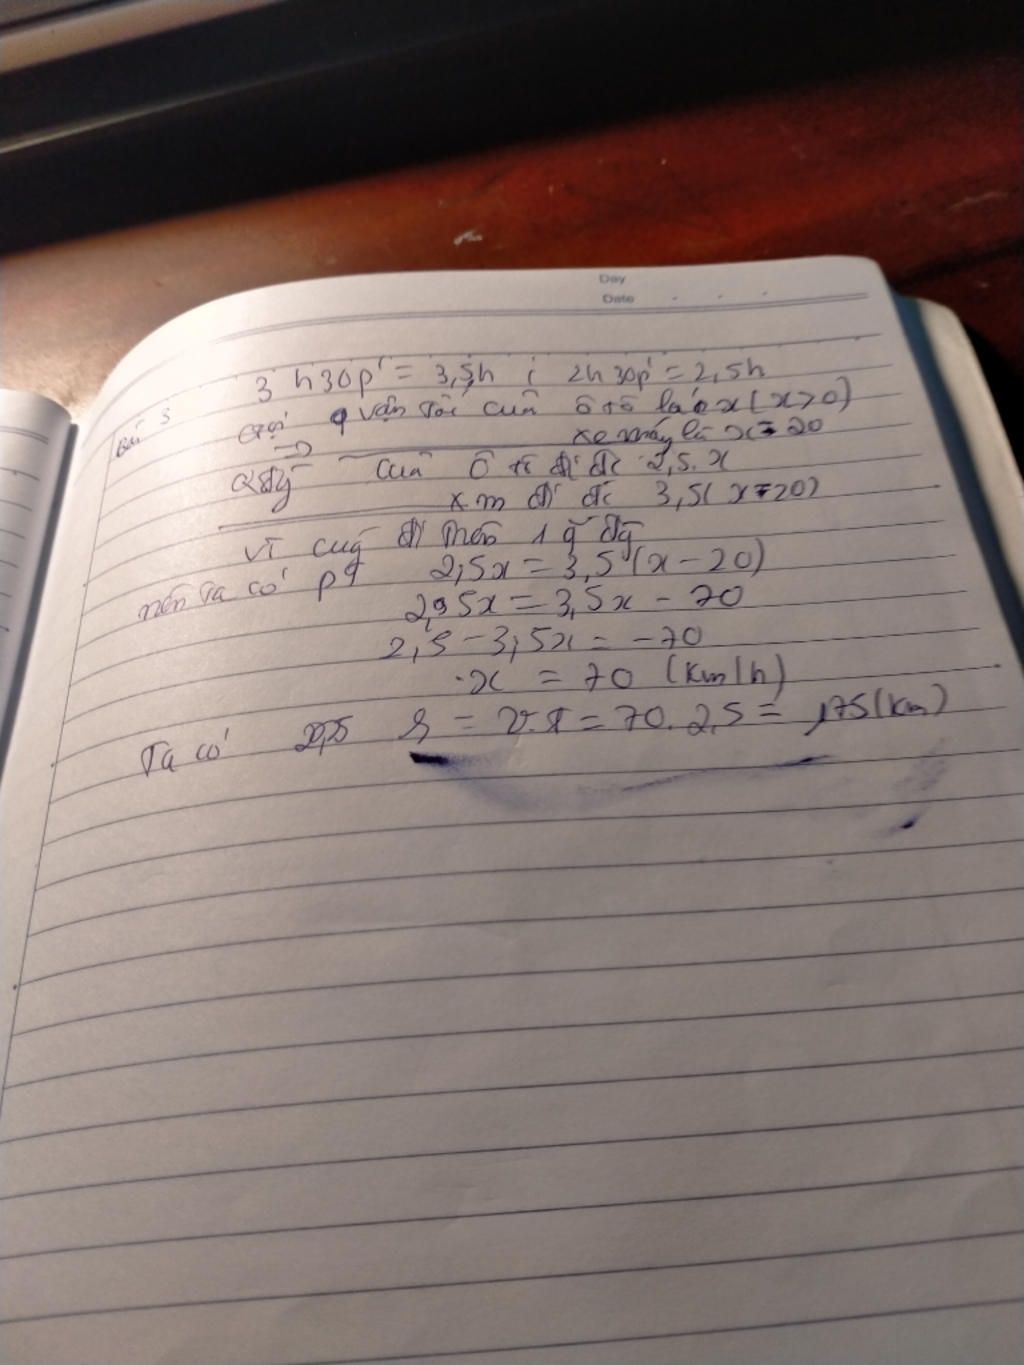 Day
Date
3 h30p' = 3,5h ; 2h 30p' = 2,5h
Bài 3 Gọi vận tốc của ô tô là x (x>0)
=> xe máy là x - 20
Qđg của ô tô đi đc 2,5.x
xm đi đc 3,5(x-20)
Vì cùg đi trên 1 q đg
nên ta có pt 2,5x = 3,5(x-20)
2,5x = 3,5x - 70
2,5 - 3,5x = -70
x = 70 (km/h)
Ta có S = v.t = 70.2,5 = 175(km)